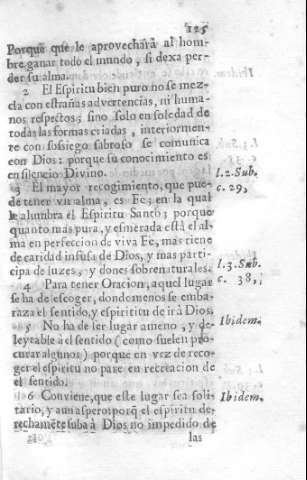 125
Porque que le aprovechàrà al hom-
bre ganar todo el mundo, si dexa per-
der su alma.
2 El Espiritu bien puro no se mez-
cla con estrañas advertencias, ni huma-
nos respectos; sino solo en soledad de
todas las formas criadas, interiormen-
te con sossiego sabroso se comunica
con Dios: porque su conocimiento es
en silencio Divino.
3 El mayor recogimiento, que pue-
de tener vn alma, es Fe; en la qual
le alumbra el Espiritu Santo; porque
quanto mas pura, y esmerada està el al-
ma en perfeccion de viva Fe, mas tiene
de caridad infusa de Dios, y mas parti-
cipa de luzes, y dones sobrenaturales.
4 Para tener Oracion, aquel lugar
se ha de escoger, donde menos se emba-
raza el sentido, y espiritu de ir à Dios.
5 No ha de ser lugar ameno, y de-
leytable al sentido (como suelen pro-
curar algunos) porque en vez de reco-
ger el espiritu no pare en recreacion de
el sentido.
6 Conviene, que este lugar sea soli-
tario, y aun aspero: porq̃ el espiritu de-
rechamẽte suba à Dios no impedido de
las
1.2.Sub.
c. 29,
1.3.Sub.
c. 38,
Ibidem.
Ibidem.